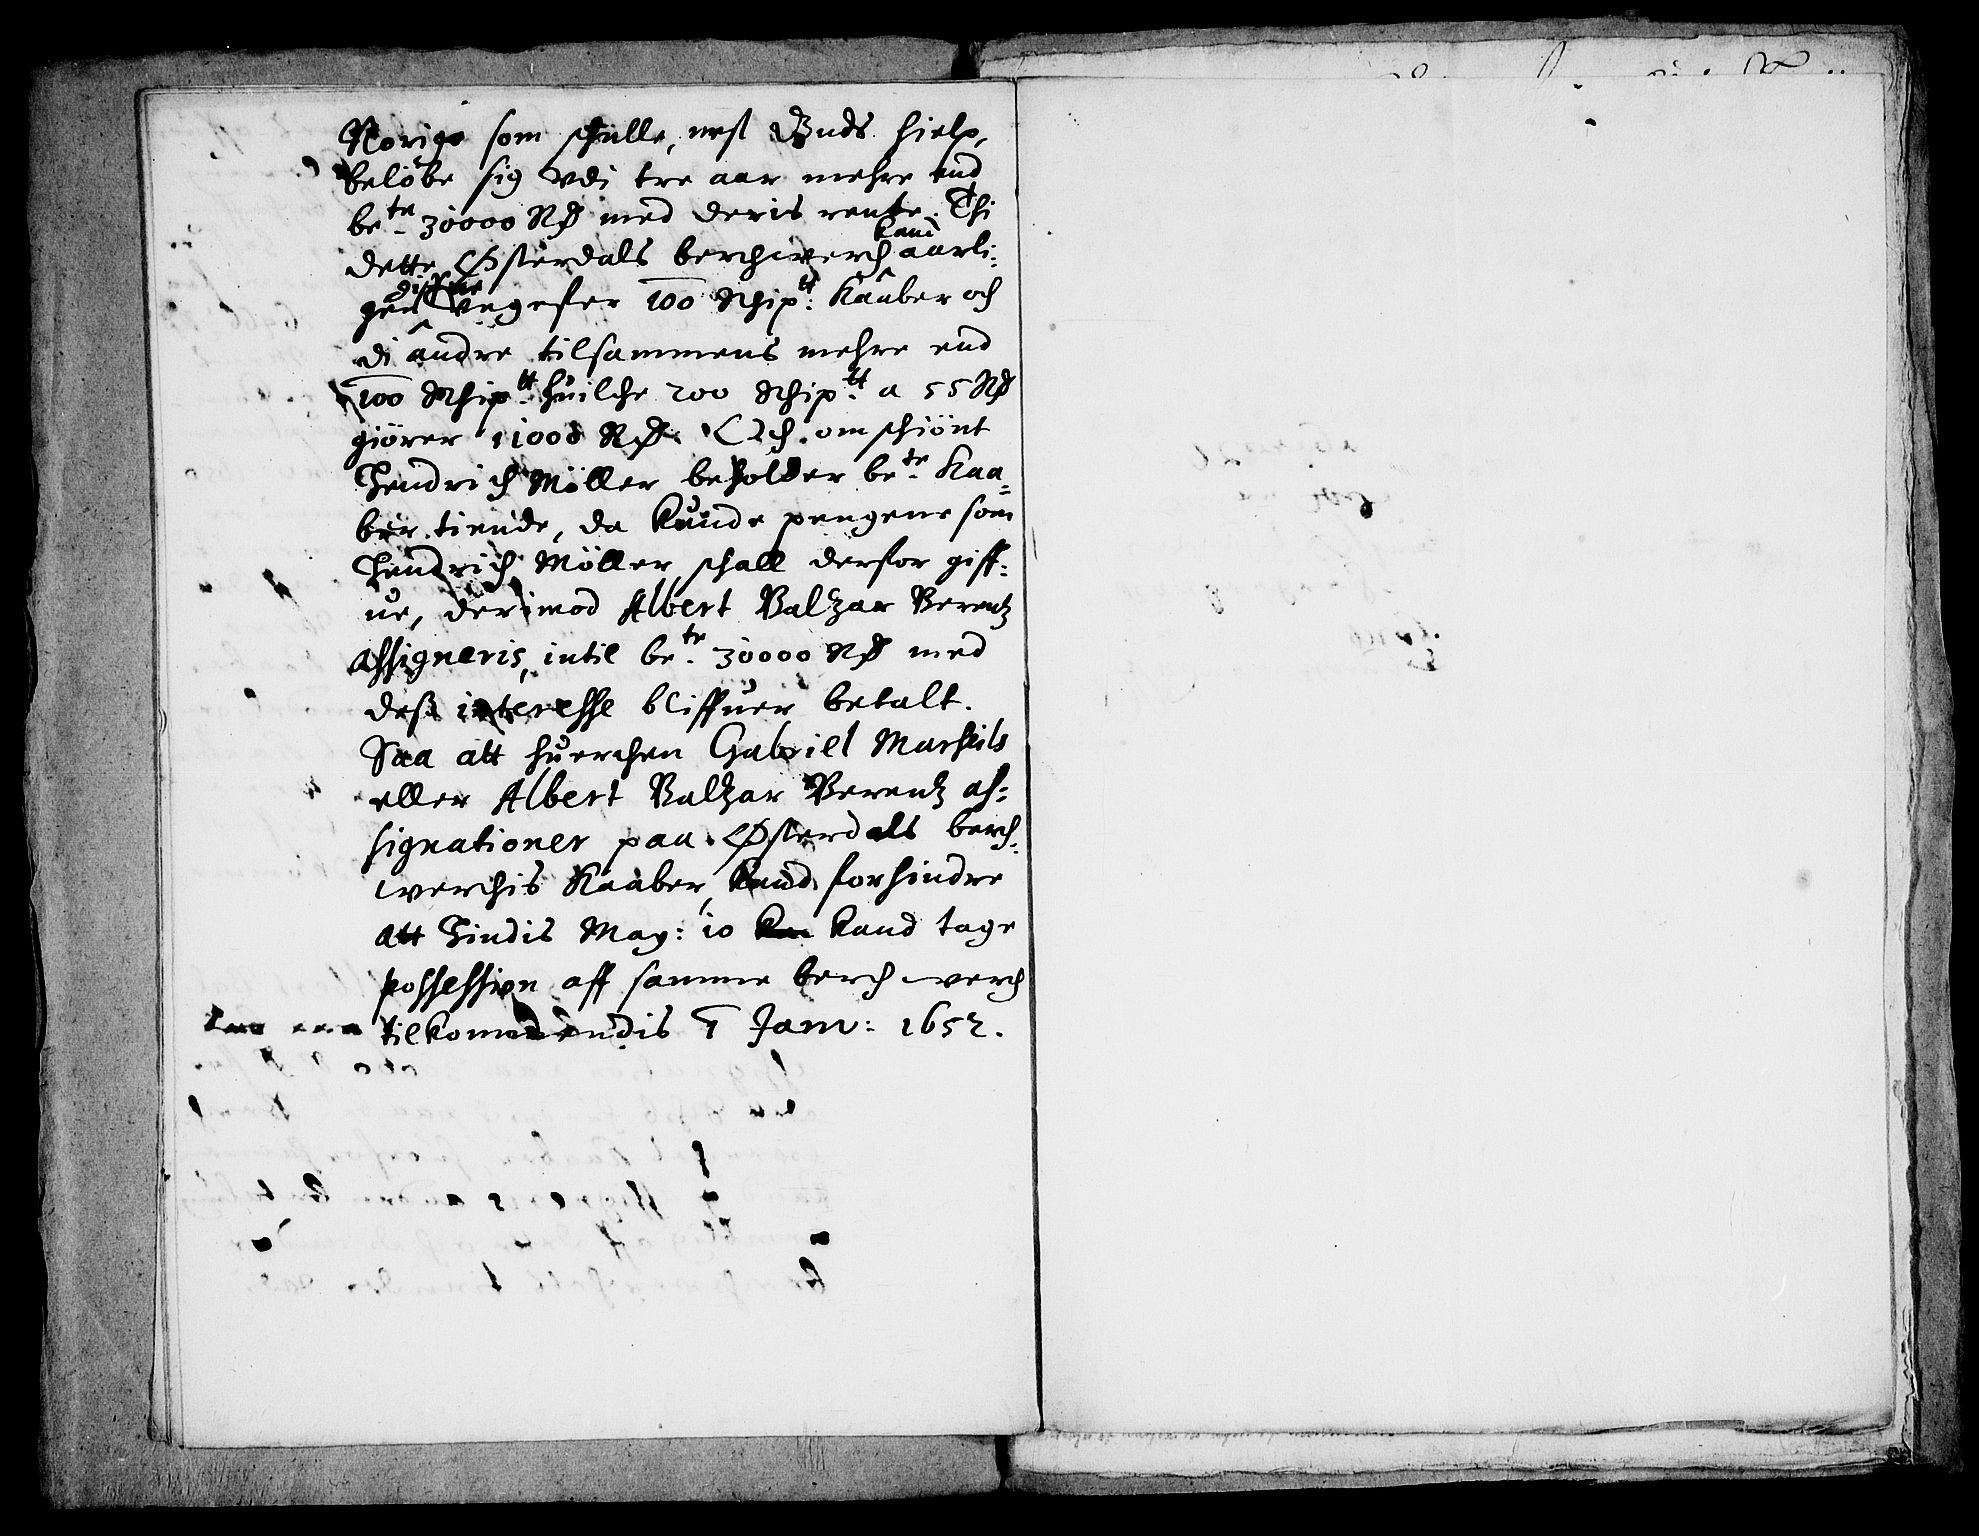 Norige som schulle, nest Guds hielp,
belöbe sig udi tre aar mehre end
be.te 30000 Rd med deris rente. Thi
dette Østerdals berchwerch kand aarli:
gen vngefer 100 Schip.tt Kaaber och
di andre tilsammens mehre end
100 Schip.tt huilche 200 Schip.tt a 55 Rd
giörer 11000 Rd. Och om schiönt
Hendrich Möller beholder be.te Kaa=
ber tiende, da kunde pengene som
Hendrich Möller schall derfor giff:
ue, derimod Albert Balzar Berentz
assigneris, intil be.te 30000 Rd med
dess interesse bliffuer betalt.
Saa att huerchen Gabriel Marselis
eller Albert Balzar Berentz as:
signationer paa Østerdals berch:
werchis Kaaber, kand forhindre
att Hindis May: io kan kand tage
possession aff samme berchwerch
tilkommendis 1 Janv: 1652.